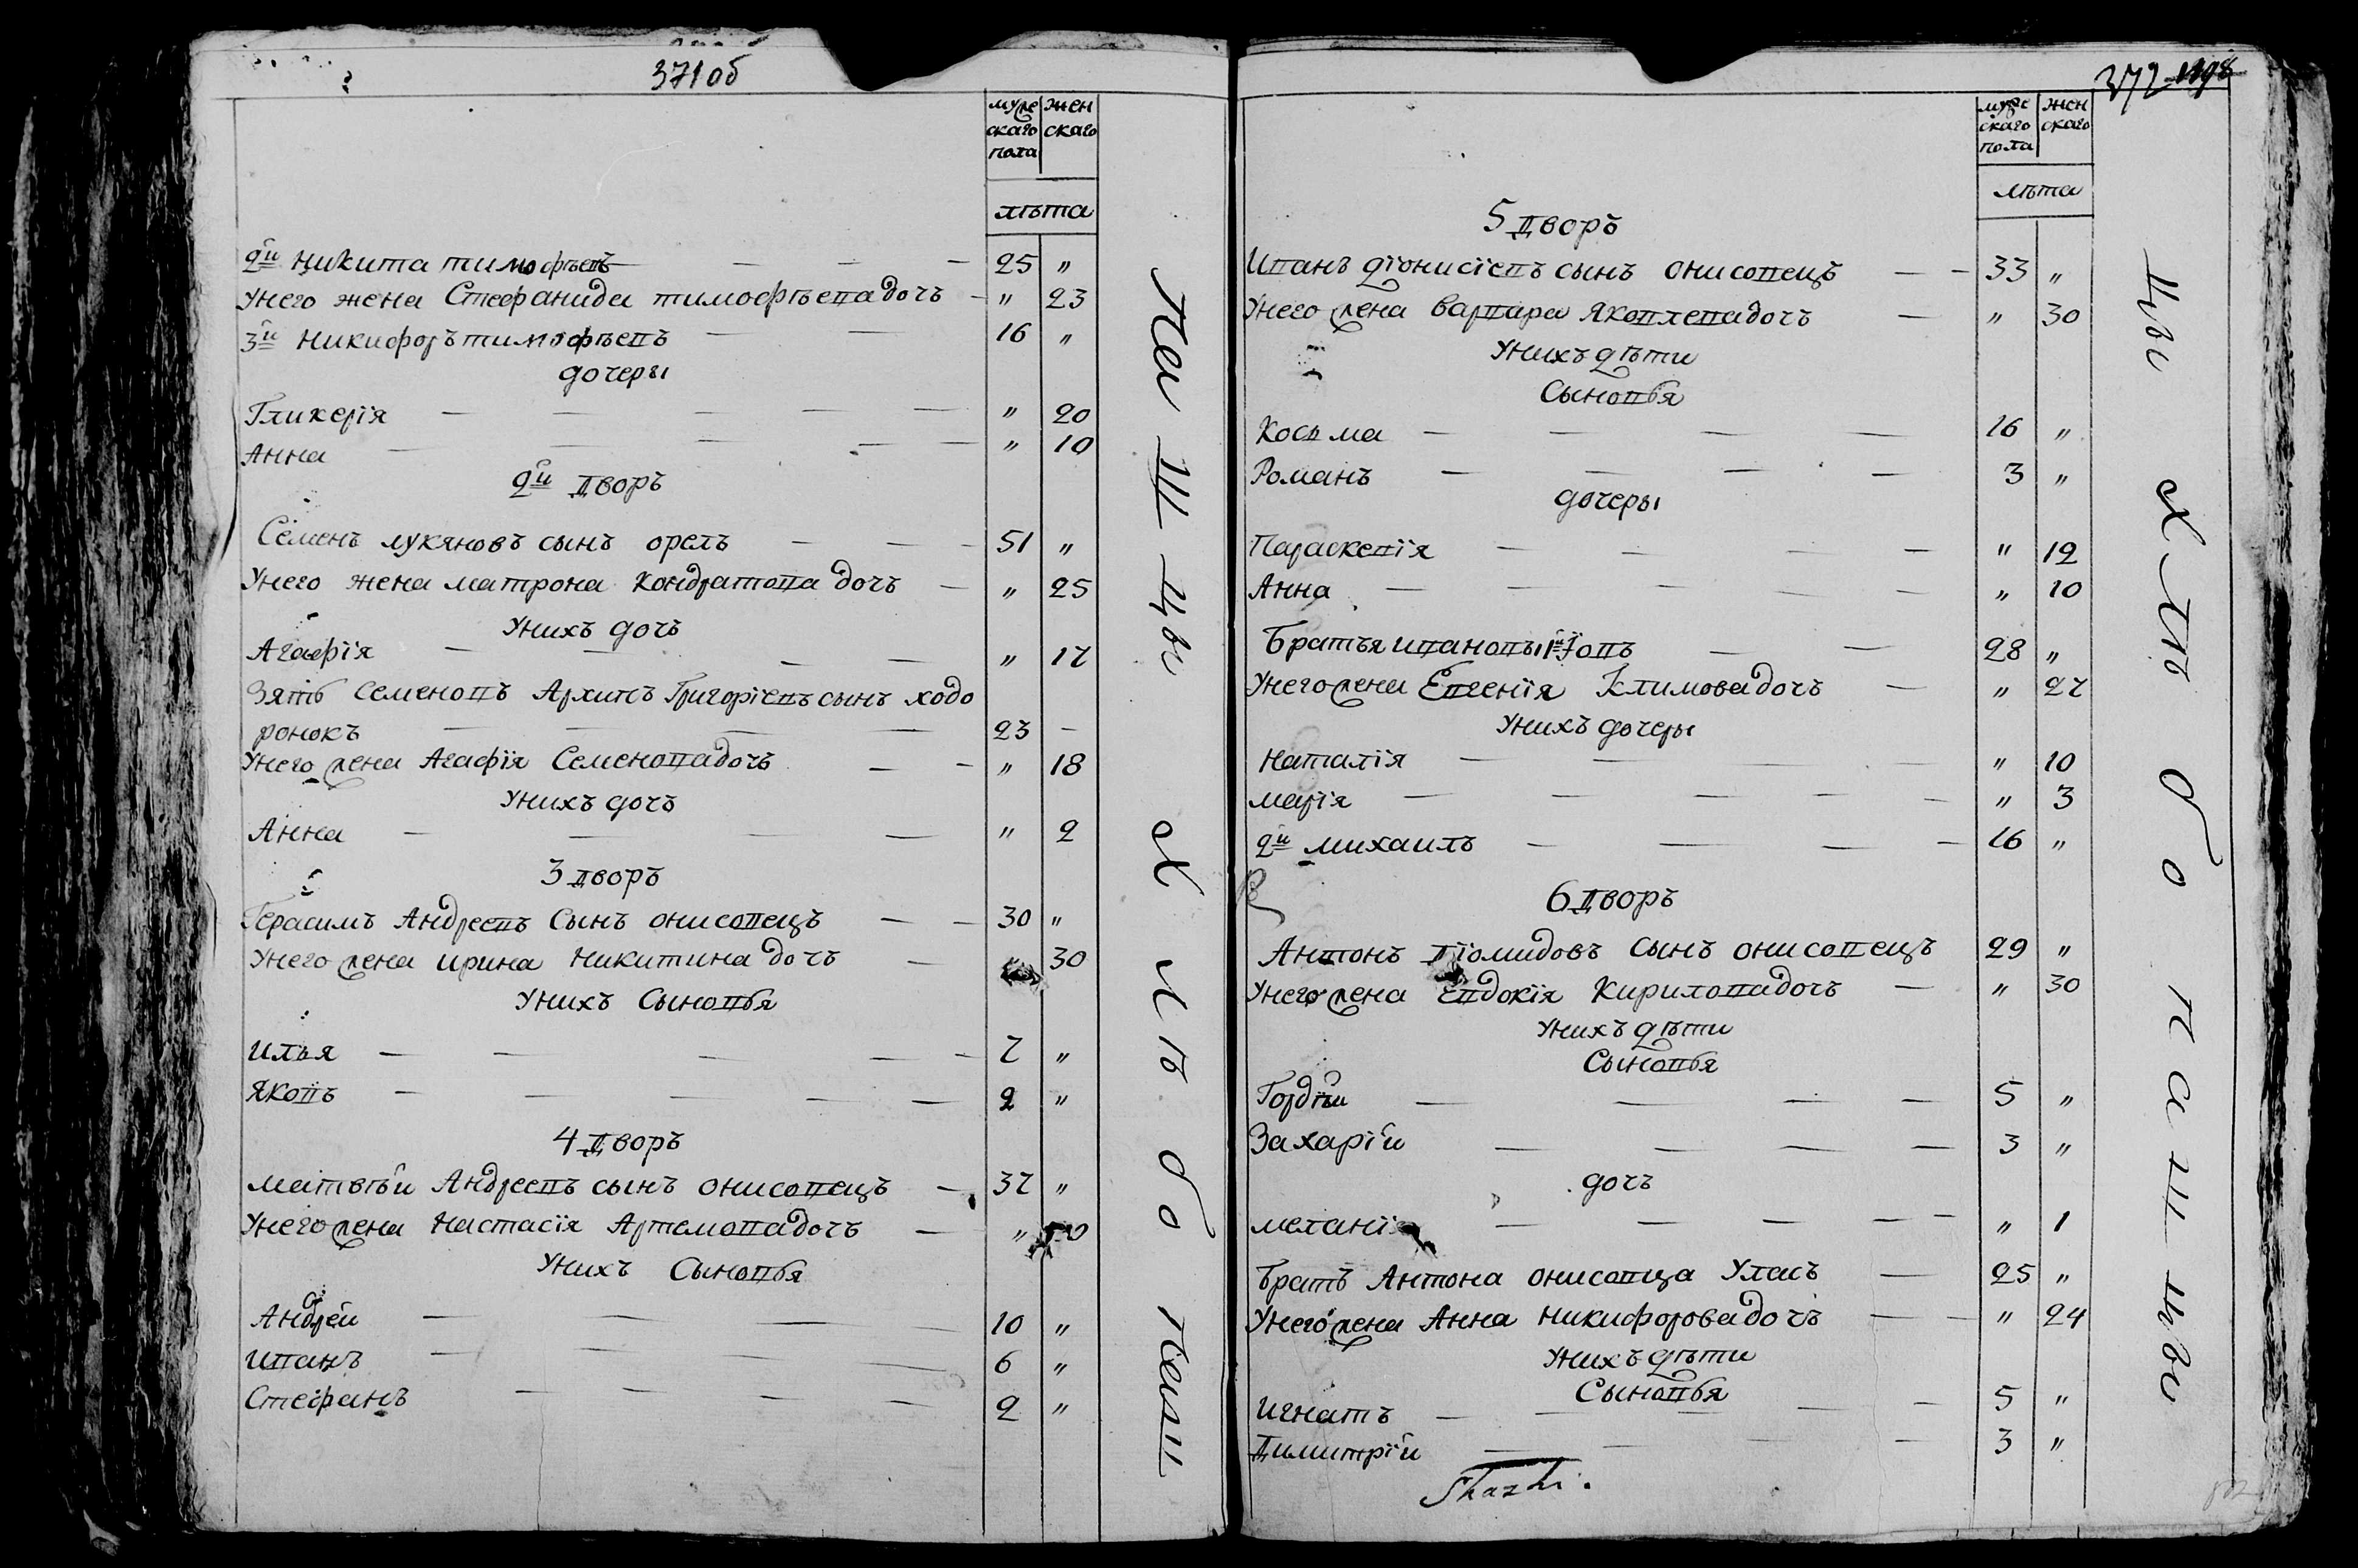 371об
муже жен
скаго скаго
пола
лѣта
2й Никита тимофѣевъ — — — — 25 "
Унего жена Стефанида тимофѣева дочь — " 23
3й Никифоръ тимофѣевъ — — 16 "
дочеры
Гликерія — — — — — " 20
Анна — — — — — " 10
2й дворъ
Семенъ лукяновъ сынъ орелъ — — — 51 "
Унего жена матрона кондратова дочь — " 25
Унихъ дочь
Агафія — — — — " 17
Зять Семеновъ Архипъ Григоріевъ сынъ ходо
ронокъ — — — — 23 —
Унего жена Агафія Семенова дочь — — " 18
Унихъ дочь
Анна — — — — " 2
3 дворъ
Герасимъ Андреевъ Сынъ онисовецъ — — 30 "
Унего жена ирина Никитина дочь — 30
Унихъ Сыновья
Илья — — — — — 7 "
Яковъ — — — — — 2 "
4 дворъ
матвѣй Андреевъ сынъ онисовецъ — 37 "
Унего жена Настасія Артемова дочь — " 30
Унихъ Сыновья
Андрей — — — — 10 "
Иванъ — — — — 6 "
Стефанъ — — — — 2 "
Па Ш Цы Х Лѣ бо паш
372 1198
муже жен
скаго скаго
пола
лѣта
5 дворъ
Иванъ діонисіевъ сынъ онисовецъ — — 33 "
Унего жена варвара Яковлева дочь — " 30
Унихъ дѣти
Сыновья
Косьма — — — — 16 "
Романъ — — — — 3 "
дочеры
Параскевія — — — — " 12
Анна — — — — — " 10
Братья ивановы 1й Іовъ — — 28 "
Унего жена Евгенія Климова дочь — " 27
Унихъ дочеры
Наталія — — — — " 10
марія — — — — — " 3
2й михаилъ — — — — 16 "
6 дворъ
Антонъ Діомидовъ сынъ онисовецъ 29 "
Унего жена Евдокія Кирилова дочь — " 30
Унихъ дѣти
Сыновья
Гордѣй — — — — 5 "
Захарій — — — — 3 "
дочь
меланія — — — — — " 1
братъ Антона онисовца Уласъ — 25 "
Унего жена Анна Никифорова дочь — — " 24
Унихъ дѣти
Сыновья
Игнатъ — — — — — 5 "
Димитрій — — — 3 "
цы Х Лѣ бо паш цы